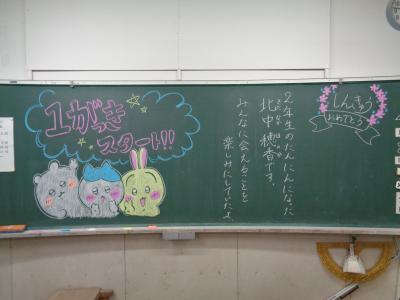 1がっき
スタート!!
2年生のたんにんになった
北中 穂香です。
みんなに会えることを
楽しみにしていたよ
しんきゅう
おめでとう